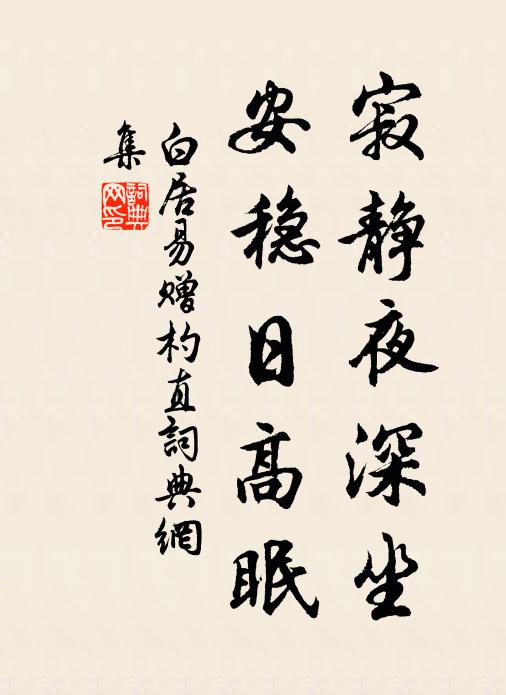 寂静夜深坐
安稳日高眠
白居易赠杓直詞典網
集
詞典网印